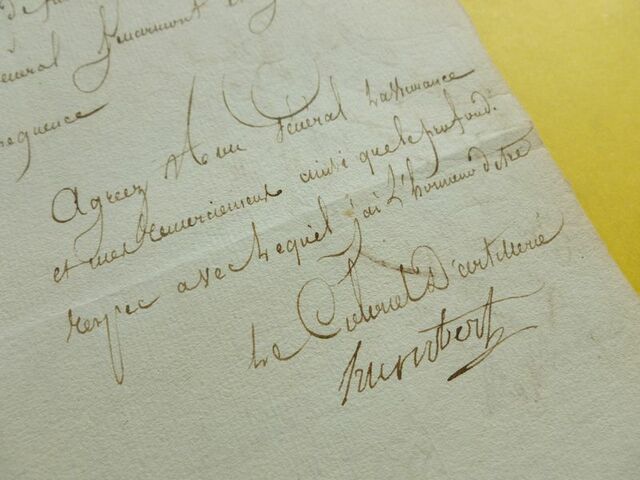 général Senarmont
sequence
Agreez Mon Général l'assurance
et mes remerciements ainsi que le profond
respec avec lequel j'ai l'honneur d'etre
Le Colonel D'artillerie
humbert